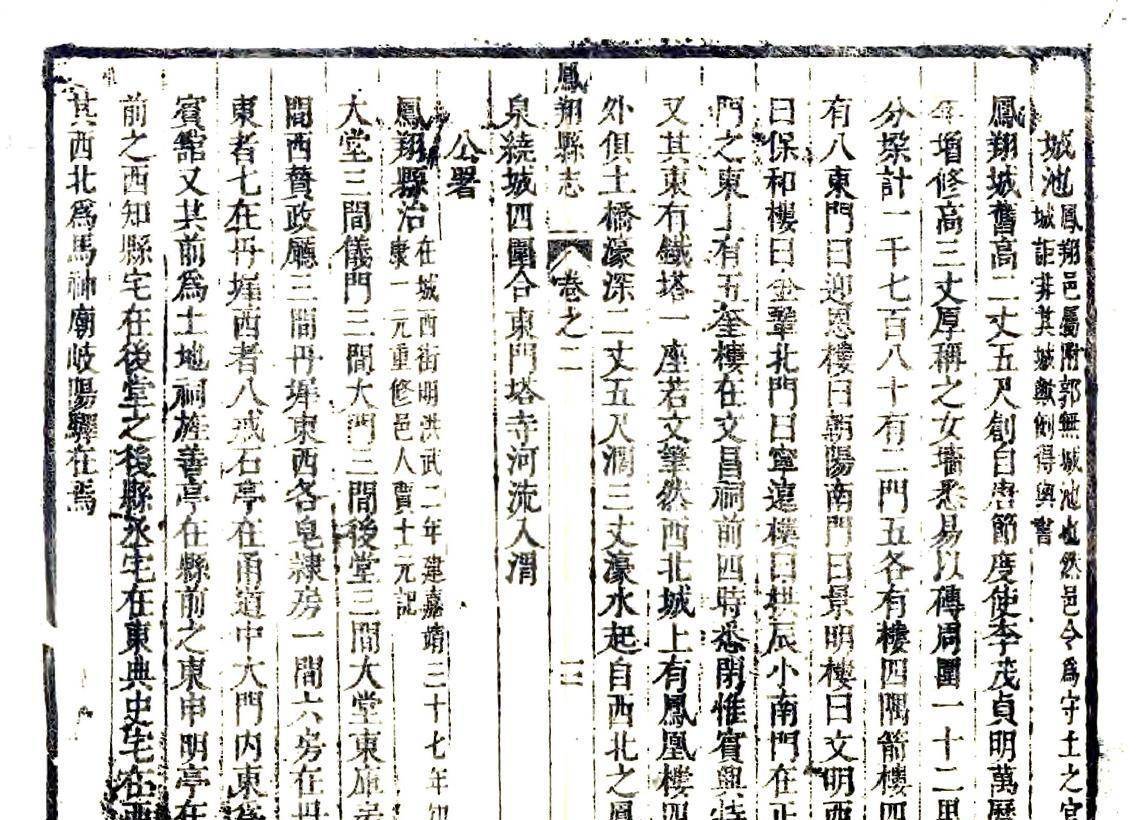 城池鳳翔邑屬附郭無城池也然邑令爲守土之官
城詎非其城歟例得與書
鳳翔城舊高二丈五尺創自唐節度使李茂貞明萬歷
年增修高三丈厚稱之女墻悉易以磚周圍一十二里
分垜計一千七百八十有二門五各有樓四隅箭樓四
有八東門曰迎恩樓曰朝陽南門曰景明樓曰文明西
曰保和樓曰金鞏北門曰寧遠樓曰拱辰小南門在正
門之東上有五奎樓在文昌祠前四時悉閉惟賓興
又其東有鐵塔一座若文筆然西北城上有鳳凰樓四
外俱土橋濠深二丈五尺濶三丈濠水起自西北之鳳
鳳翔縣志 卷之二 二
泉繞城四圍合東門塔寺河流入渭
公署
鳳翔縣治在城西街明洪武二年建嘉靖三十七年知
康一元重修邑人賈士元記
大堂三間儀門三間大門三間後堂三間大堂東庫
間西贊政廳三間丹墀東西各皂隸房一間六房在丹
東者七在丹墀西者八戒石亭在甬道中大門內東爲
賓舘又其前爲土地祠旌善亭在縣前之東申明亭在
前之西知縣宅在後堂之後縣丞宅在東典史宅在西
其西北爲馬神廟岐陽驛在焉